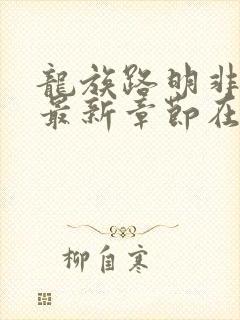 龍族路明非
最新章節在
柳自寒